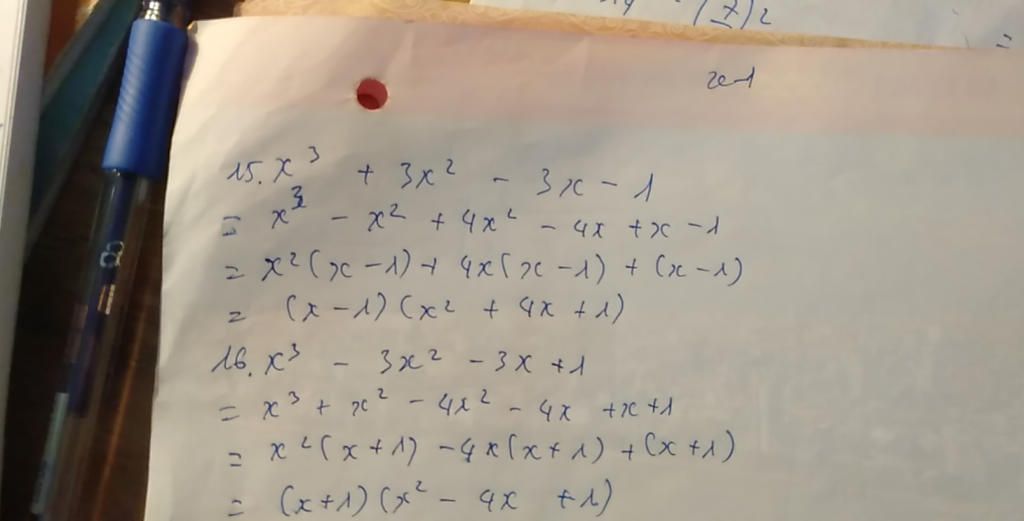 (7)2
=
x-1
15. x³ + 3x² - 3x - 1
= x³ - x² + 4x² - 4x + x - 1
= x²(x - 1) + 4x(x - 1) + (x - 1)
= (x - 1)(x² + 4x + 1)
16. x³ - 3x² - 3x + 1
= x³ + x² - 4x² - 4x + x + 1
= x²(x + 1) - 4x(x + 1) + (x + 1)
= (x + 1)(x² - 4x + 1)